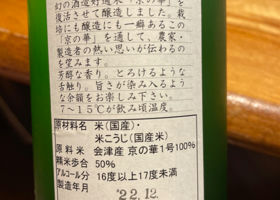 幻の酒造好適米「京の華」を
復活させて醸造しました。栽
培にも醸造にも一癖あるこの
「京の華」を通して、農家・
製造者の熱い思いが伝わるの
を望みます。
芳醇な香り。とろけるような
舌触り。旨さが染みへるよう
な余韻をお楽しみ下さい。
7~15℃が飲み頃温度。
原材料名 米(国産)・
米こうじ(国産米)
原料米 会津産 京の華1号100%
精米歩合 50%
アルコール分 16度以上17度未満
製造年月 '22.12.